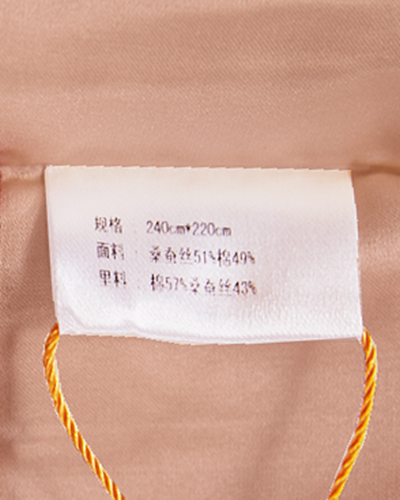 规格 240cm*220cm
面料 桑蚕丝51%棉49%
里料 棉57%桑蚕丝43%